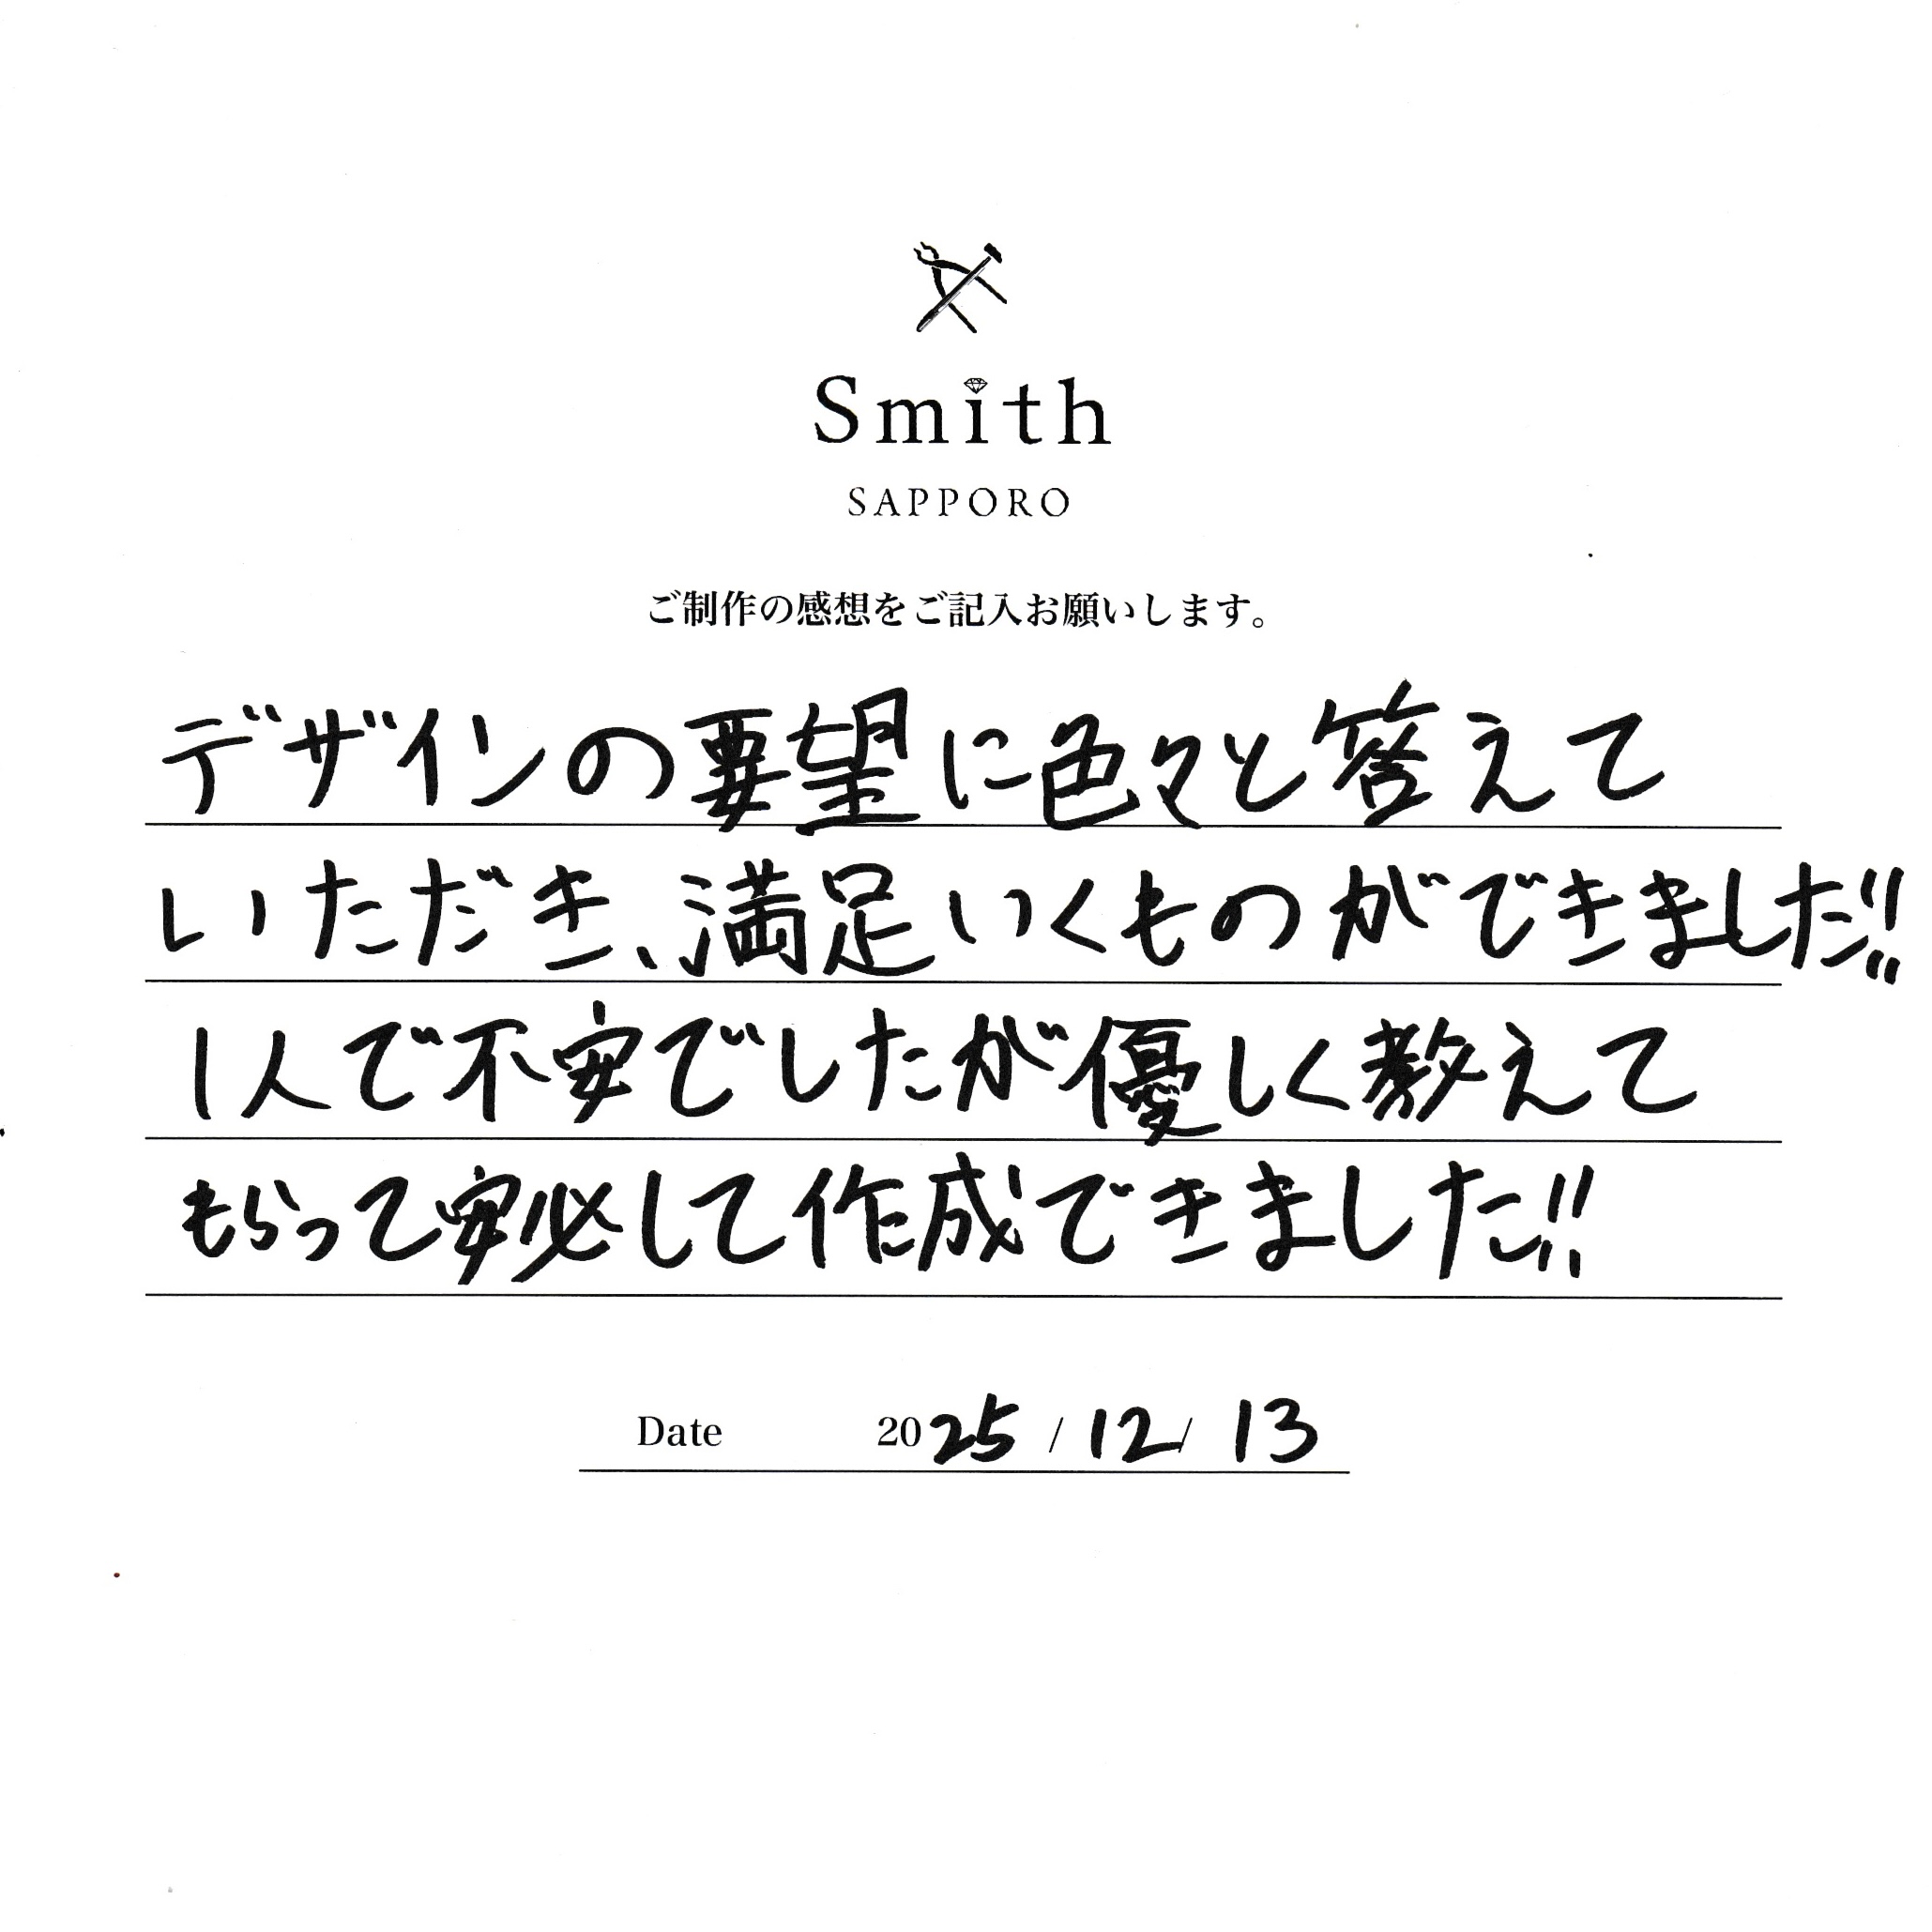 Smith
SAPPORO
ご制作の感想をご記入お願いします。
デザインの要望に色々と答えて
いただき、満足いくものができました!!
1人で不安でしたが優しく教えて
もらって安心して作成できました!!
Date 2025 / 12 / 13